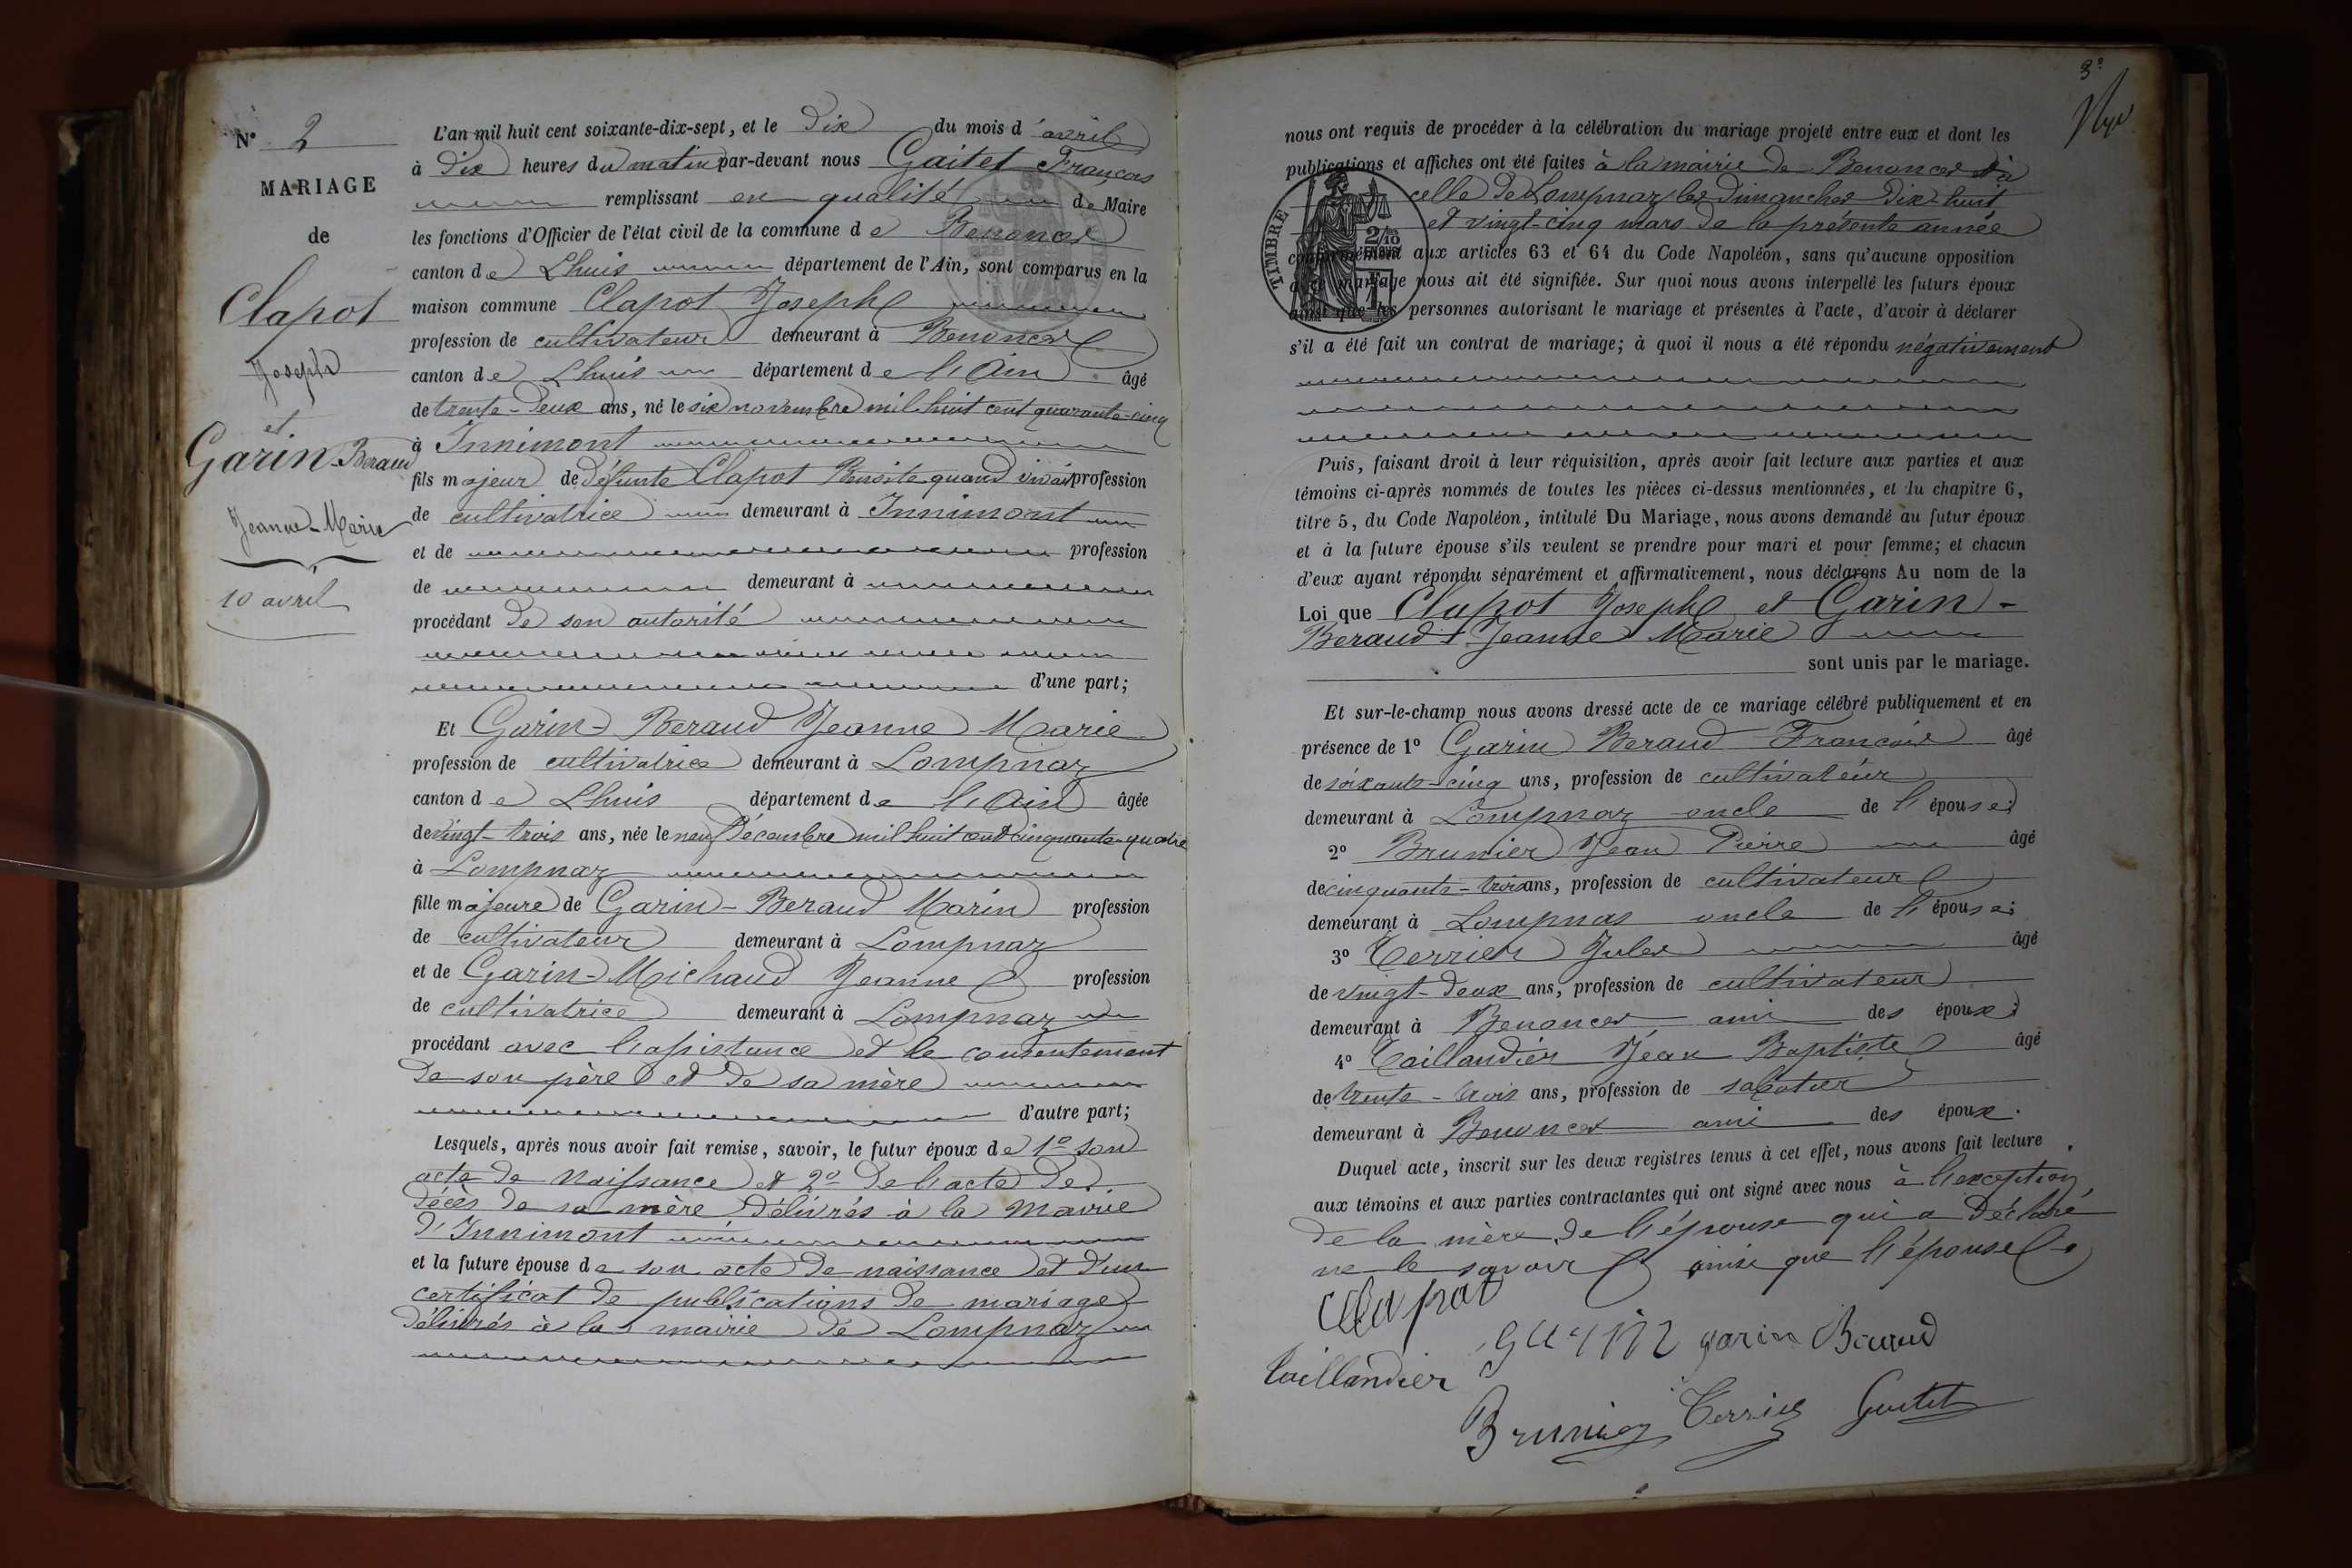 N° 2
MARIAGE
de
Clapot
Joseph
et
Garin-Beraud
Jeanne-Marie
10 avril
L'an mil huit cent soixante-dix-sept, et le Dix du mois d'avril
à Dix heures du matin par-devant nous Gaitet François
remplissant en qualité de Maire
les fonctions d'Officier de l'état civil de la commune de Benonces
canton de Lhuis département de l'Ain, sont comparus en la
maison commune Clapot Joseph
profession de cultivateur demeurant à Benonces
canton de Lhuis département de l'Ain âgé
de trente-Deux ans, né le six novembre mil huit cent quarante-cinq
à Innimont
fils majeur de Défunte Clapot Benoite quand vivait profession
de cultivatrice demeurant à Innimont
et de profession
de demeurant à
procédant De son autorité
d'une part;
Et Garin-Beraud Jeanne Marie
profession de cultivatrice demeurant à Lompnaz
canton de Lhuis département de l'Ain âgée
de vingt-trois ans, née le neuf Décembre mil huit cent cinquante-quatre
à Lompnaz
fille majeure de Garin-Beraud Marin profession
de cultivateur demeurant à Lompnaz
et de Garin-Michaud Jeanne profession
de cultivatrice demeurant à Lompnaz
procédant avec l'assistance et le consentement
De son père et De sa mère
d'autre part;
Lesquels, après nous avoir fait remise, savoir, le futur époux de 1° son
acte de Naissance et 2° De l'acte De
décès De sa mère Délivrés à la Mairie
D'Innimont
et la future épouse de son acte De naissance et D'un
certificat De publications De mariage
Délivrés à la mairie De Lompnaz
3e
nous ont requis de procéder à la célébration du mariage projeté entre eux et dont les
publications et affiches ont été faites à la mairie De Benonces et à
celle De Lompnaz les Dimanches Dix-huit
et vingt-cinq mars De la présente année
conformément aux articles 63 et 64 du Code Napoléon, sans qu'aucune opposition
à ce mariage nous ait été signifiée. Sur quoi nous avons interpellé les futurs époux
ainsi que les personnes autorisant le mariage et présentes à l'acte, d'avoir à déclarer
s'il a été fait un contrat de mariage; à quoi il nous a été répondu négativement
TIMBRE
2/10
Puis, faisant droit à leur réquisition, après avoir fait lecture aux parties et aux
témoins ci-après nommés de toutes les pièces ci-dessus mentionnées, et du chapitre 6,
titre 5, du Code Napoléon, intitulé Du Mariage, nous avons demandé au futur époux
et à la future épouse s'ils veulent se prendre pour mari et pour femme; et chacun
d'eux ayant répondu séparément et affirmativement, nous déclarons Au nom de la
Loi que Clapot Joseph et Garin-
Beraud Jeanne Marie
sont unis par le mariage.
Et sur-le-champ nous avons dressé acte de ce mariage célébré publiquement et en
présence de 1° Garin Beraud François âgé
de soixante-cinq ans, profession de cultivateur
demeurant à Lompnaz oncle de l'épouse;
2° Brunier Jean Pierre âgé
de cinquante-trois ans, profession de cultivateur
demeurant à Lompnas oncle de l'épouse;
3° Terrier Jules âgé
de vingt-Deux ans, profession de cultivateur
demeurant à Benonces ami des époux;
4° Taillandier Jean Baptiste âgé
de trente-trois ans, profession de sabotier
demeurant à Benonces ami des époux.
Duquel acte, inscrit sur les deux registres tenus à cet effet, nous avons fait lecture
aux témoins et aux parties contractantes qui ont signé avec nous à l'exception
De la mère De l'épouse qui a Déclaré
ne le savoir ainsi que l'épouse
Clapot
garin garin Beraud
taillandier
Brunier Terrier Gaitet